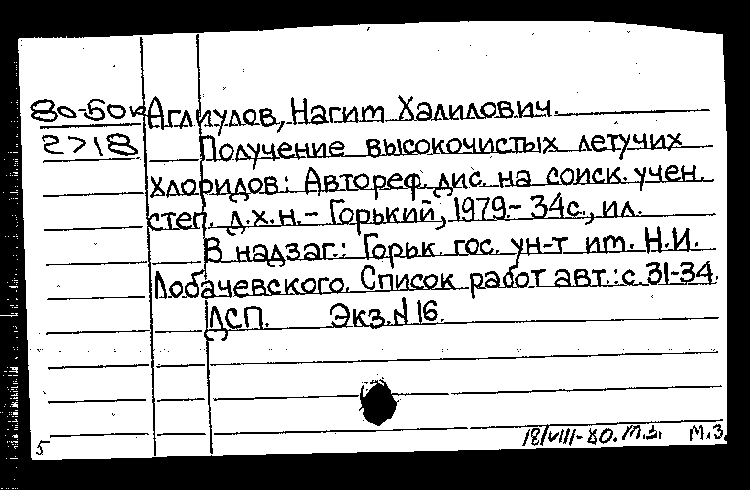 80-50к Аглиулов, Нагит Халилович.
2718 Получение высокочистых летучих
хлоридов: Автореф. дис. на соиск. учен.
степ. д.х.н. - Горький, 1979 - 34с., ил.
В надзаг.: Горьк. гос. ун-т им. Н.И.
Лобачевского. Список работ авт.: с. 31-34.
ДСП. Экз. N 16.
18/VIII-80. М.З. М.З.
5